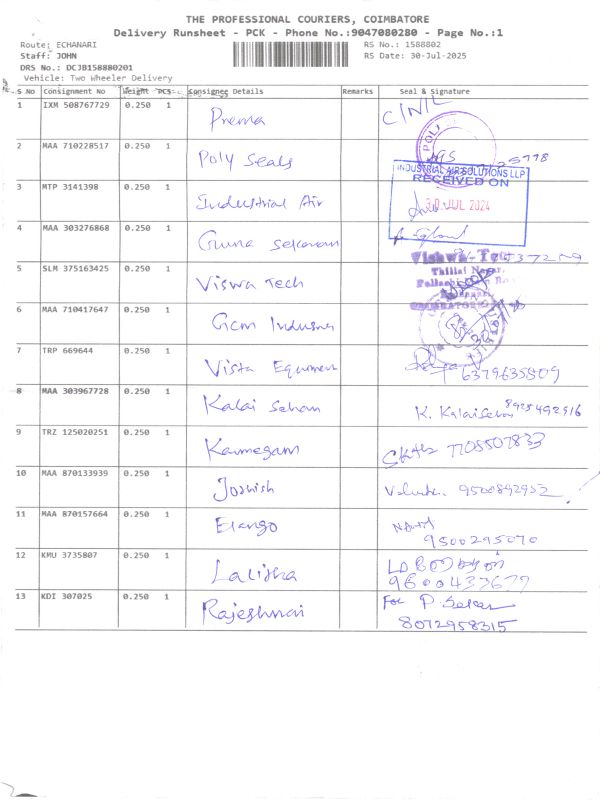 THE PROFESSIONAL COURIERS, COIMBATORE
Delivery Runsheet - PCK - Phone No.:9047080280 - Page No.:1
Route: ECHANARI RS No.: 1588802
Staff: JOHN RS Date: 30-Jul-2025
DRS No.: DCJB158880201
Vehicle: Two Wheeler Delivery
S No Consignment No Weight PCS Consignee Details Remarks Seal & Signature
1 IXM 508767729 0.250 1 Prema
2 MAA 710228517 0.250 1 Poly Seals
INDUSTRIAL AIR SOLUTIONS LLP
RECEIVED ON
3 MTP 3141398 0.250 1 Industrial Air
30 JUL 2024
4 MAA 303276868 0.250 1 Guna Sekaran
Vishwa-Tech
Thillai Nagar,
5 SLM 375163425 0.250 1 Viswa Tech
6 MAA 710417647 0.250 1
7 TRP 669644 0.250 1 Vista 6379635809
8 MAA 303967728 0.250 1 Kalai Selvan K. Kalaiselvan 8925492916
9 TRZ 125020251 0.250 1 Karmegam 7705507833
10 MAA 870133939 0.250 1 9500892952
11 MAA 870157664 0.250 1 Elango
9500295070
12 KMU 3735807 0.250 1 Lalitha
9600433677
13 KDI 307025 0.250 1 For P. Sekar
8072958315